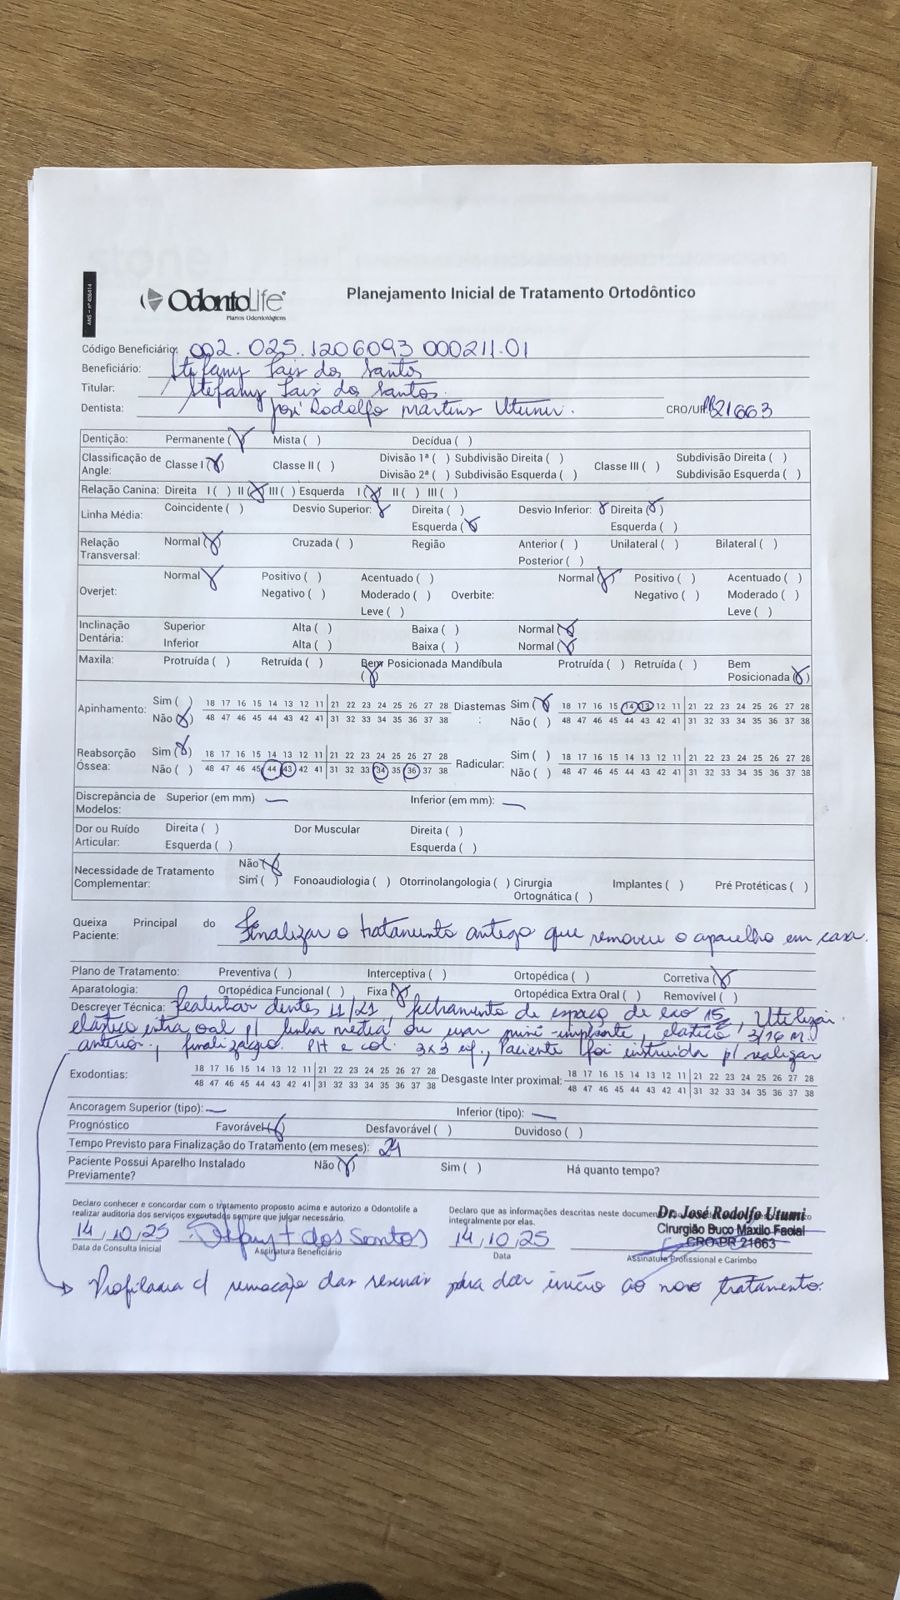 ANS - nº 406414
OdontoLife
Planos Odontológicos
Planejamento Inicial de Tratamento Ortodôntico
Código Beneficiário: 002.025.1206093 000211.01
Beneficiário: Stefany Lais dos Santos
Titular: Stefany Lais dos Santos.
Dentista: José Rodolfo Martins Utumi. CRO/UF: PR21663
Dentição: Permanente (X) Mista ( ) Decídua ( )
Classificação de Angle: Classe I (X) Classe II ( ) Divisão 1ª ( ) Subdivisão Direita ( ) Classe III ( ) Subdivisão Direita ( )
Divisão 2ª ( ) Subdivisão Esquerda ( ) Subdivisão Esquerda ( )
Relação Canina: Direita I ( ) II (X) III ( ) Esquerda I (X) II ( ) III ( )
Linha Média: Coincidente ( ) Desvio Superior: X Direita ( ) Desvio Inferior: X Direita (X)
Esquerda (X) Esquerda ( )
Relação Transversal: Normal (X) Cruzada ( ) Região Anterior ( ) Unilateral ( ) Bilateral ( )
Posterior ( )
Overjet: Normal X Positivo ( ) Acentuado ( ) Overbite: Normal (X) Positivo ( ) Acentuado ( )
Negativo ( ) Moderado ( ) Negativo ( ) Moderado ( )
Leve ( ) Leve ( )
Inclinação Dentária: Superior Alta ( ) Baixa ( ) Normal (X)
Inferior Alta ( ) Baixa ( ) Normal (X)
Maxila: Protruída ( ) Retruída ( ) Bem Posicionada (X) Mandíbula Protruída ( ) Retruída ( ) Bem Posicionada (X)
Apinhamento: Sim ( ) 18 17 16 15 14 13 12 11 21 22 23 24 25 26 27 28 Diastemas : Sim (X) 18 17 16 15 14 13 12 11 21 22 23 24 25 26 27 28
Não (X) 48 47 46 45 44 43 42 41 31 32 33 34 35 36 37 38 Não ( ) 48 47 46 45 44 43 42 41 31 32 33 34 35 36 37 38
Reabsorção Óssea: Sim (X) 18 17 16 15 14 13 12 11 21 22 23 24 25 26 27 28 Radicular: Sim ( ) 18 17 16 15 14 13 12 11 21 22 23 24 25 26 27 28
Não ( ) 48 47 46 45 44 43 42 41 31 32 33 34 35 36 37 38 Não ( ) 48 47 46 45 44 43 42 41 31 32 33 34 35 36 37 38
Discrepância de Modelos: Superior (em mm) — Inferior (em mm): —
Dor ou Ruído Articular: Direita ( ) Dor Muscular Direita ( )
Esquerda ( ) Esquerda ( )
Necessidade de Tratamento Complementar: Não (X)
Sim ( ) Fonoaudiologia ( ) Otorrinolangologia ( ) Cirurgia Ortognática ( ) Implantes ( ) Pré Protéticas ( )
Queixa Principal do Paciente: Finalizar o tratamento antigo que removeu o aparelho em casa.
Plano de Tratamento: Preventiva ( ) Interceptiva ( ) Ortopédica ( ) Corretiva (X)
Aparatologia: Ortopédica Funcional ( ) Fixa (X) Ortopédica Extra Oral ( ) Removível ( )
Descrever Técnica: dentes 11/21, fechamento de espaço de Utilizar
elástico intra oral p/ linha média, ou usar mini-implante, elástico 3/16 M.
anterior, finalização. PH e col. 3x3 inf., Paciente foi instruida p/ realizar
Exodontias: 18 17 16 15 14 13 12 11 21 22 23 24 25 26 27 28 Desgaste Inter proximal: 18 17 16 15 14 13 12 11 21 22 23 24 25 26 27 28
48 47 46 45 44 43 42 41 31 32 33 34 35 36 37 38 48 47 46 45 44 43 42 41 31 32 33 34 35 36 37 38
Ancoragem Superior (tipo): — Inferior (tipo): —
Prognóstico Favorável (X) Desfavorável ( ) Duvidoso ( )
Tempo Previsto para Finalização do Tratamento (em meses): 24
Paciente Possui Aparelho Instalado Previamente? Não (X) Sim ( ) Há quanto tempo?
Declaro conhecer e concordar com o tratamento proposto acima e autorizo a Odontolife a realizar auditoria dos serviços executados sempre que julgar necessário.
Declaro que as informações descritas neste documento integralmente por elas.
Dr. José Rodolfo Utumi
Cirurgião Buco Maxilo Facial
CRO-PR 21663
14/10/25 Stefany L dos Santos 14/10/25
Data da Consulta Inicial Assinatura Beneficiário Data Assinatura Profissional e Carimbo
Profilaxia c/ remoção das resinas para dar início ao novo tratamento.